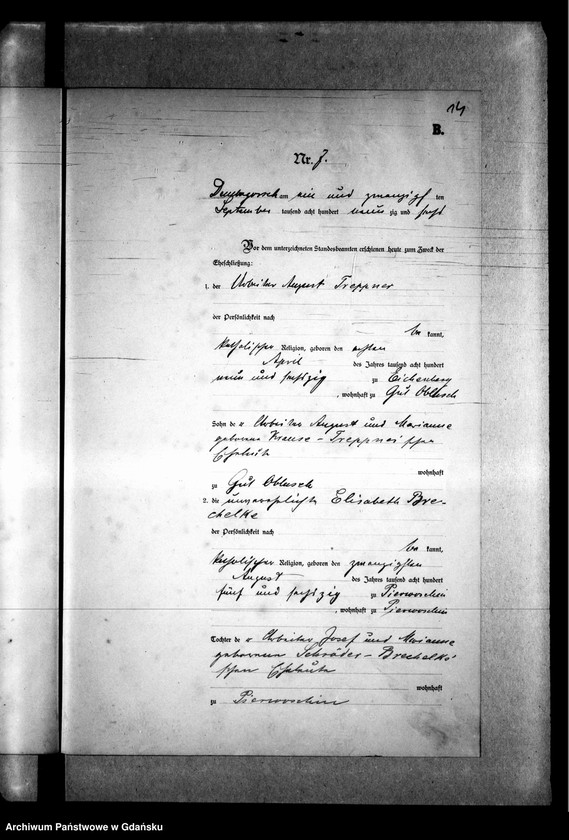 14
B.
Nr. 7.
am ein und zwanzigsten
September tausend acht hundert neunzig und sechs
Vor dem unterzeichneten Standesbeamten erschienen heute zum Zweck der
Eheschließung:
1. der Arbeiter August Treppner
der Persönlichkeit nach
be kannt,
katholischer Religion, geboren den achten
April des Jahres tausend acht hundert
neun und sechszig zu Eichenberg
, wohnhaft zu Gut Oblusch
Sohn de r Arbeiter August und Marianne
geborene Krause - Treppner'schen
Eheleute
wohnhaft
zu Gut Oblusch
2. die unverehelichte Elisabeth Bre-
chelke
der Persönlichkeit nach
be kannt,
katholischer Religion, geboren den zwanzigsten
August des Jahres tausend acht hundert
fünf und sechszig zu Pierwoschin
, wohnhaft zu Pierwoschin
Tochter de r Arbeiter Josef und Marianne
geborene Schröder - Brechelke'
schen Eheleute
wohnhaft
zu Pierwoschin
Archiwum Państwowe w Gdańsku